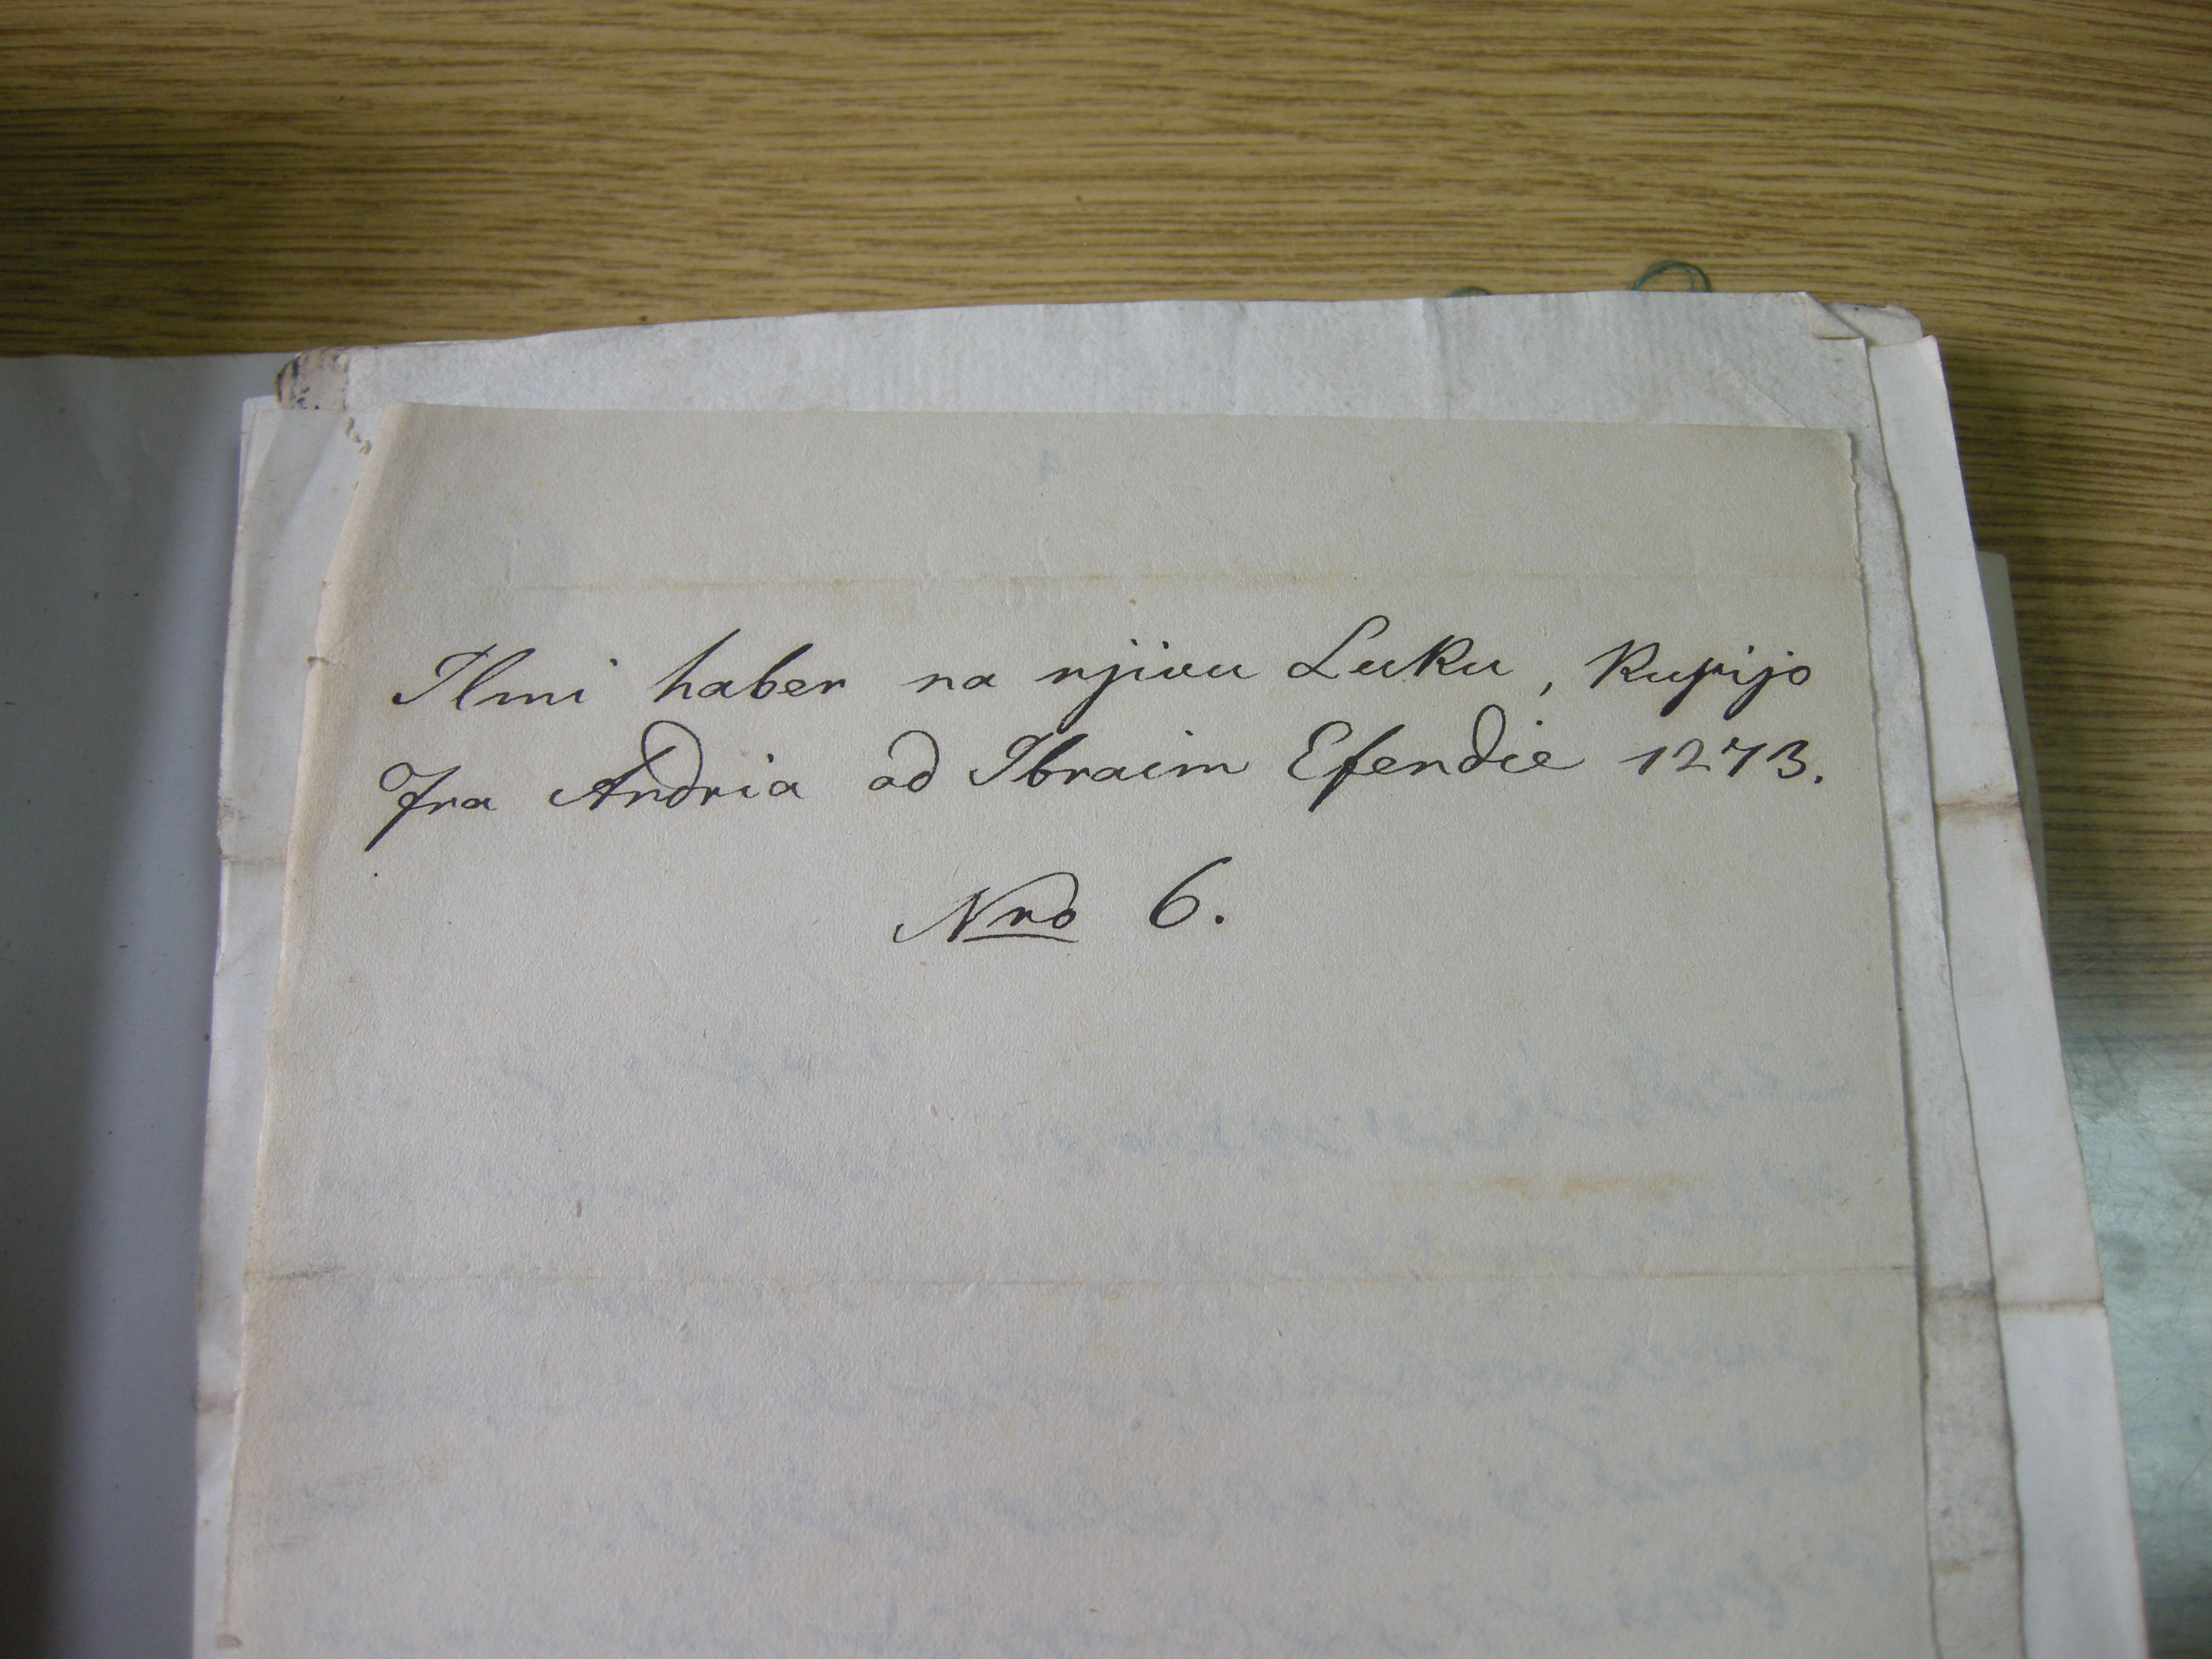 Ilmi haber na njivu Luku, Kupijo
fra Andria od Ibraim Efendie 1273.
Nro 6.